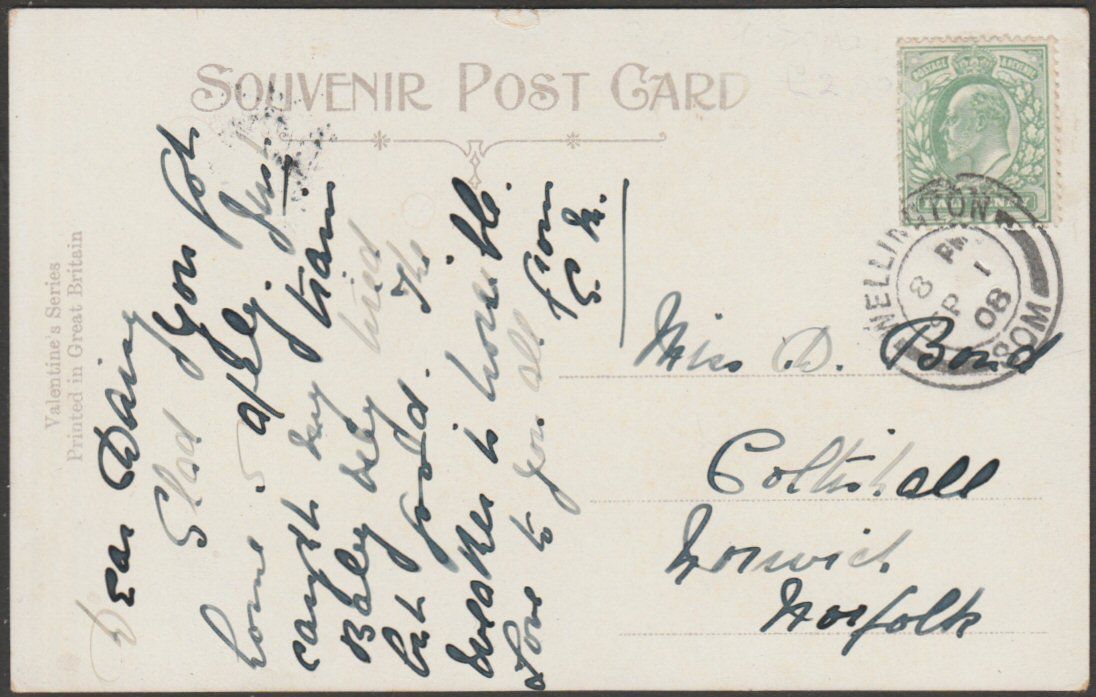 SOUVENIR POST CARD
Valentine's Series
Printed in Great Britain
POSTAGE & REVENUE
HALFPENNY
WELLINGTON
8 PM
SP 1
08
SOM
Dear Daisy
Glad you got
home safely. Just
caught my train
Baby very tired
but good. The
weather is horrible.
Love to you all from
Miss D. Bond
Coltishall
Norwich
Norfolk